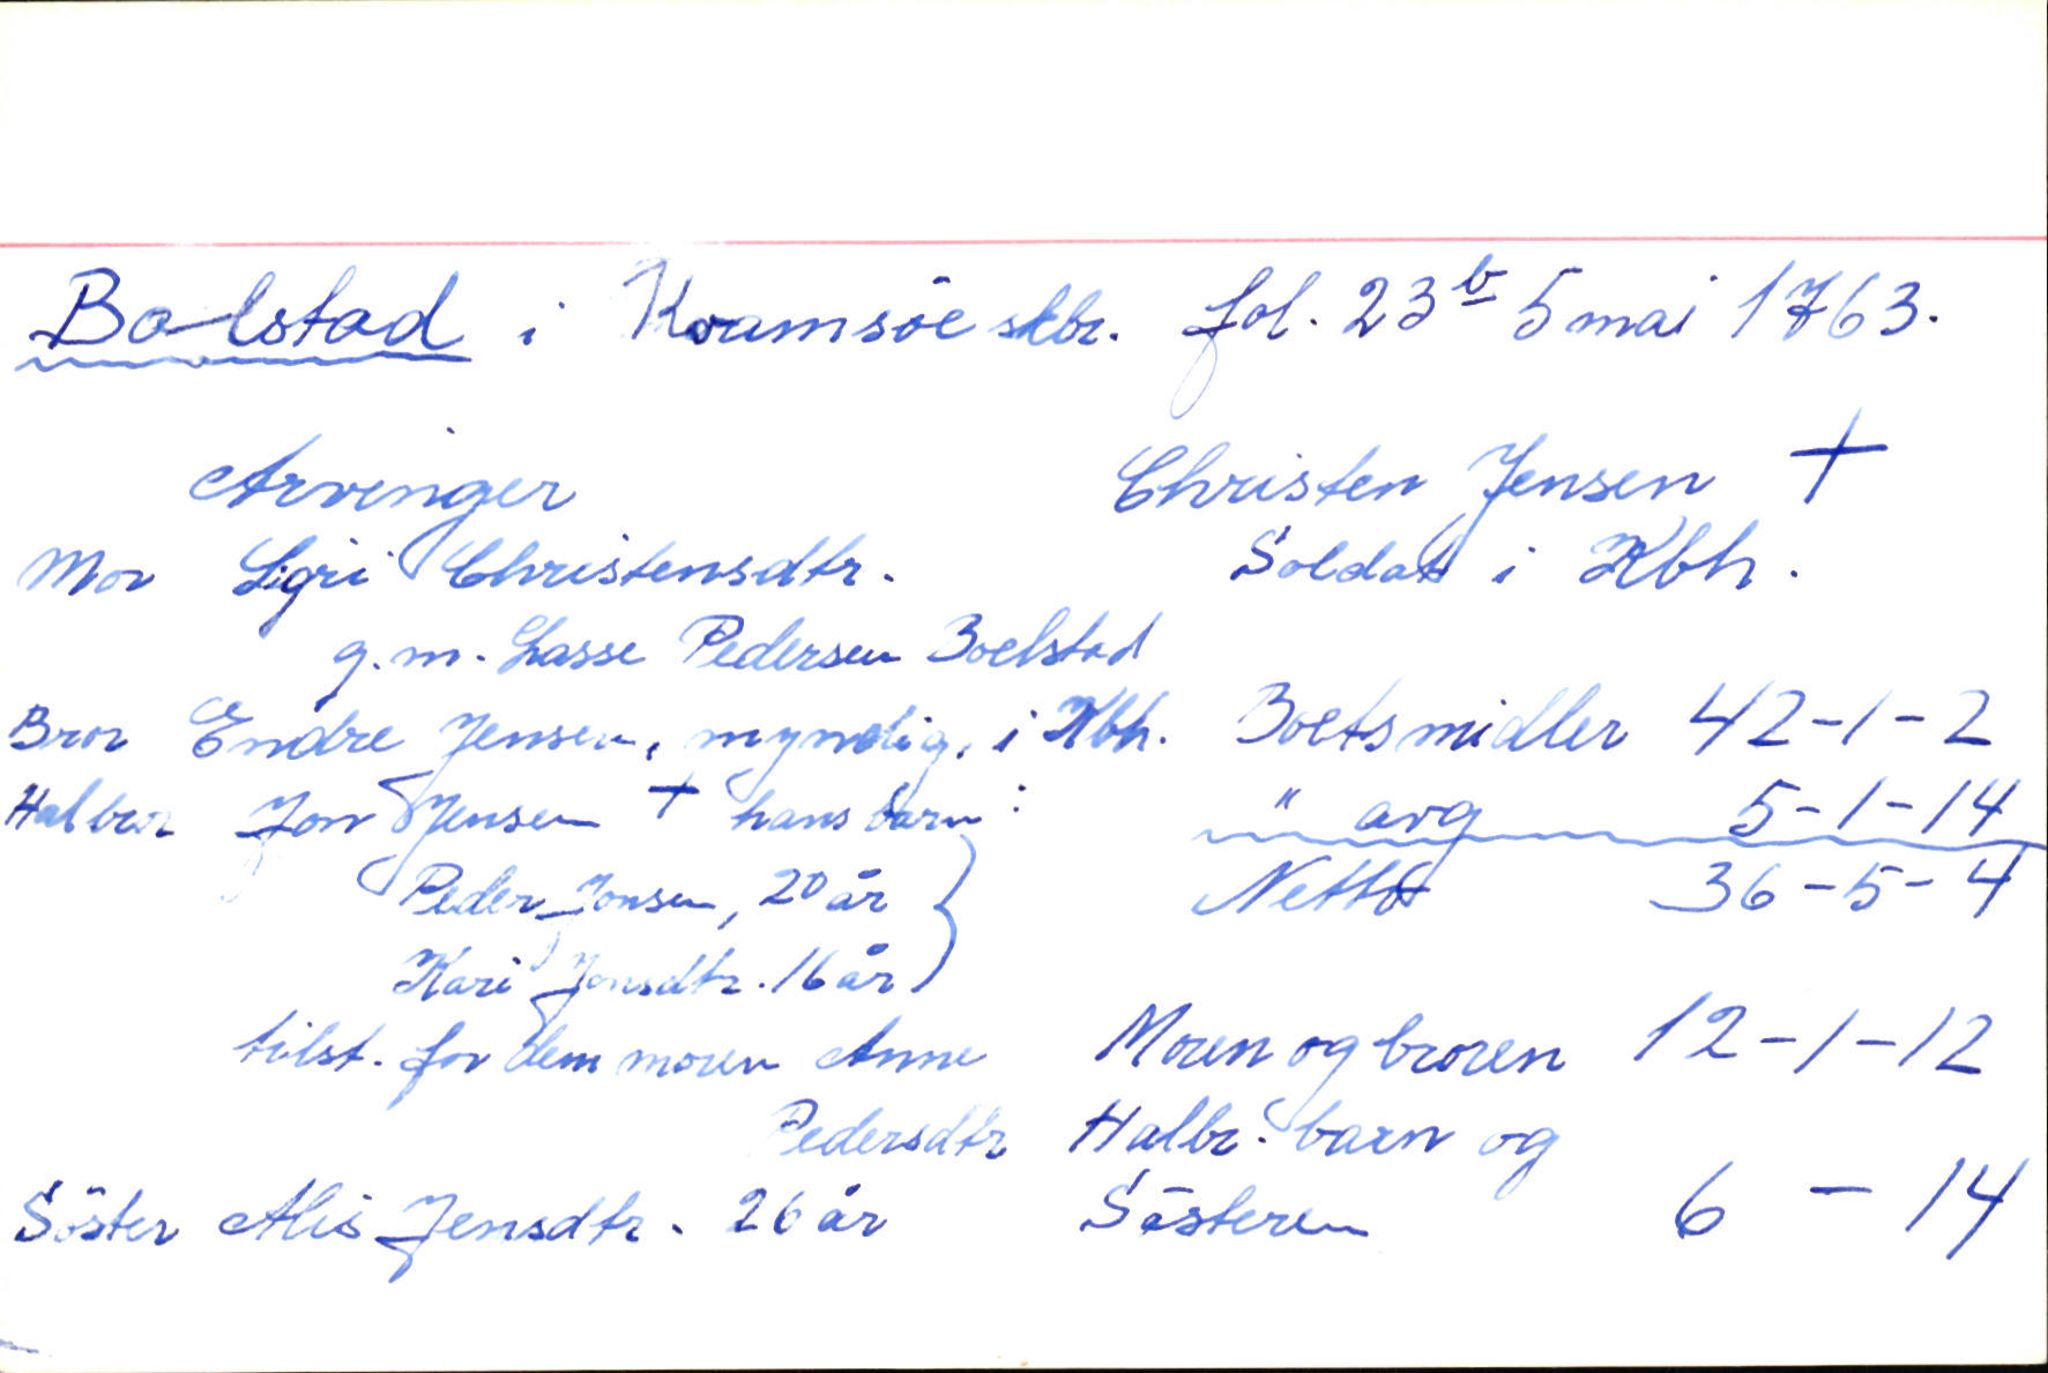 Bolstad i Kvamsöe skbr. fol. 23 b 5 mai 1763.
Arvinger Christen Jensen +
Mor Sigri Christensdtr. Soldat i Kbh.
g.m. Lasse Pedersen Boelstad
Bror Endre Jensen, myndig, i Kbh. Boetsmidler 42-1-2
Halbror Jon Jensen + hans barn: " avg 5-1-14
Peder Jonsen, 20 år Netto 36-5-4
Kari Jonsdtr. 16 år
tilst. for dem moren Anne Moren og broren 12-1-12
Pedersdtr Halbr. barn og
Söster Alis Jensdtr. 26 år Sösteren 6 - 14